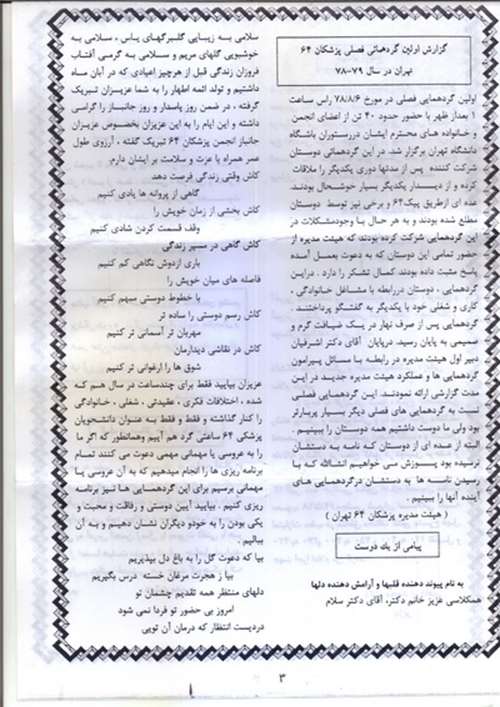 گزارش اولین گردهمائی فصلی پزشکان ۶۴
تهران در سال ۷۹-۷۸
اولین گردهمایی فصلی در مورخ ۷۸/۸/۶ راس ساعت
۱ بعداز ظهر با حضور حدود ۴۰ تن از اعضای انجمن
و خانواده های محترم ایشان دررستوران باشگاه
دانشگاه تهران برگزار شد. در این گردهمائی دوستان
شرکت کننده پس از مدتها دوری یکدیگر را ملاقات
کرده و از دیدار یکدیگر بسیار خوشحال بودند.
عده ای ازطریق پیک۶۴ و برخی نیز توسط دوستان
مطلع شده بودند و به هر حال با وجودمشکلات در
این گردهمایی شرکت کرده بودند که هیئت مدیره از
حضور تمامی این دوستان که به دعوت بعمل آمده
پاسخ مثبت داده بودند کمال تشکر را دارد . دراین
گردهمایی ، دوستان دررابطه با مشاغل خانوادگی ،
کاری و شغلی خود با یکدیگر به گفتگو پرداختند .
گردهمایی پس از صرف نهار در یک ضیافت گرم و
صمیمی به پایان رسید. درپایان آقای دکتر اشرفیان
دبیر اول هیئت مدیره در رابطه با مسائل پیرامون
گردهمایی ها و عملکرد هیئت مدیره جدید در این
مدت گزارشی ارائه نمودند. این گردهمایی فصلی
نسبت به گردهمایی های فصلی دیگر بسیار پربارتر
بود ولی ما دوست داشتیم همه دوستان را ببینیم .
البته از عده ای از دوستان که نامه به دستشان
نرسیده بود پوزش می خواهیم انشاالله که با
رسیدن نامه ها به دستشان درگردهمایی های
آینده آنها را ببینیم .
( هیئت مدیره پزشکان ۶۴ تهران )
پیامی از یک دوست
به نام پیوند دهنده قلبها و آرامش دهنده دلها
همکلاسی عزیز خانم دکتر، آقای دکتر سلام
سلامی به زیبایی گلبرگهای یاس ، سلامی به
خوشبویی گلهای مریم و سلامی به گرمی آفتاب
فروزان زندگی قبل از هرچیز اعیادی که در آبان ماه
داشتیم و تولد ائمه اطهار را به شما عزیزان تبریک
گرفته ، در ضمن روز پاسدار و روز جانباز را گرامی
داشته و این ایام را به این عزیزان بخصوص عزیزان
جانباز انجمن پزشکان ۶۴ تبریک گفته ، آرزوی طول
عمر همراه با عزت و سلامت بر ایشان دارم.
کاش وقتی زندگی فرصت دهد
گاهی از پروانه ها یادی کنیم
کاش بخشی از زمان خویش را
وقف قسمت کردن شادی کنیم
کاش گاهی در مسیر زندگی
باری ازدوش نگاهی کم کنیم
فاصله های میان خویش را
با خطوط دوستی مبهم کنیم
کاش رسم دوستی را ساده تر
مهربان تر آسمانی تر کنیم
کاش در نقاشی دیدارمان
شوق ها را ارغوانی تر کنیم
عزیزان بیایید فقط برای چندساعت در سال هم که
شده ، اختلافات فکری ، عقیدتی ، شغلی ، خانوادگی
را کنار گذاشته و فقط و فقط به عنوان دانشجویان
پزشکی ۶۴ ساعتی گرد هم آییم وهمانطور که اگر ما
را به عروسی یا مهمانی مهمی دعوت می کنند تمام
برنامه ریزی ها را انجام میدهیم که به آن عروسی یا
مهمانی برسیم برای این گردهمایی ها نیز برنامه
ریزی کنیم . بیایید آیین دوستی و رفاقت و محبت و
یکی بودن را به خودو دیگران نشان دهیم و به آن
ببالیم .
بیا که دعوت گل را به باغ دل بپذیریم
بیا ز هجرت مرغان خسته درس بگیریم
دلهای منتظر همه تقدیم چشمان تو
امروز بی حضور تو فردا نمی شود
دردیست انتظار که درمان آن تویی
۳